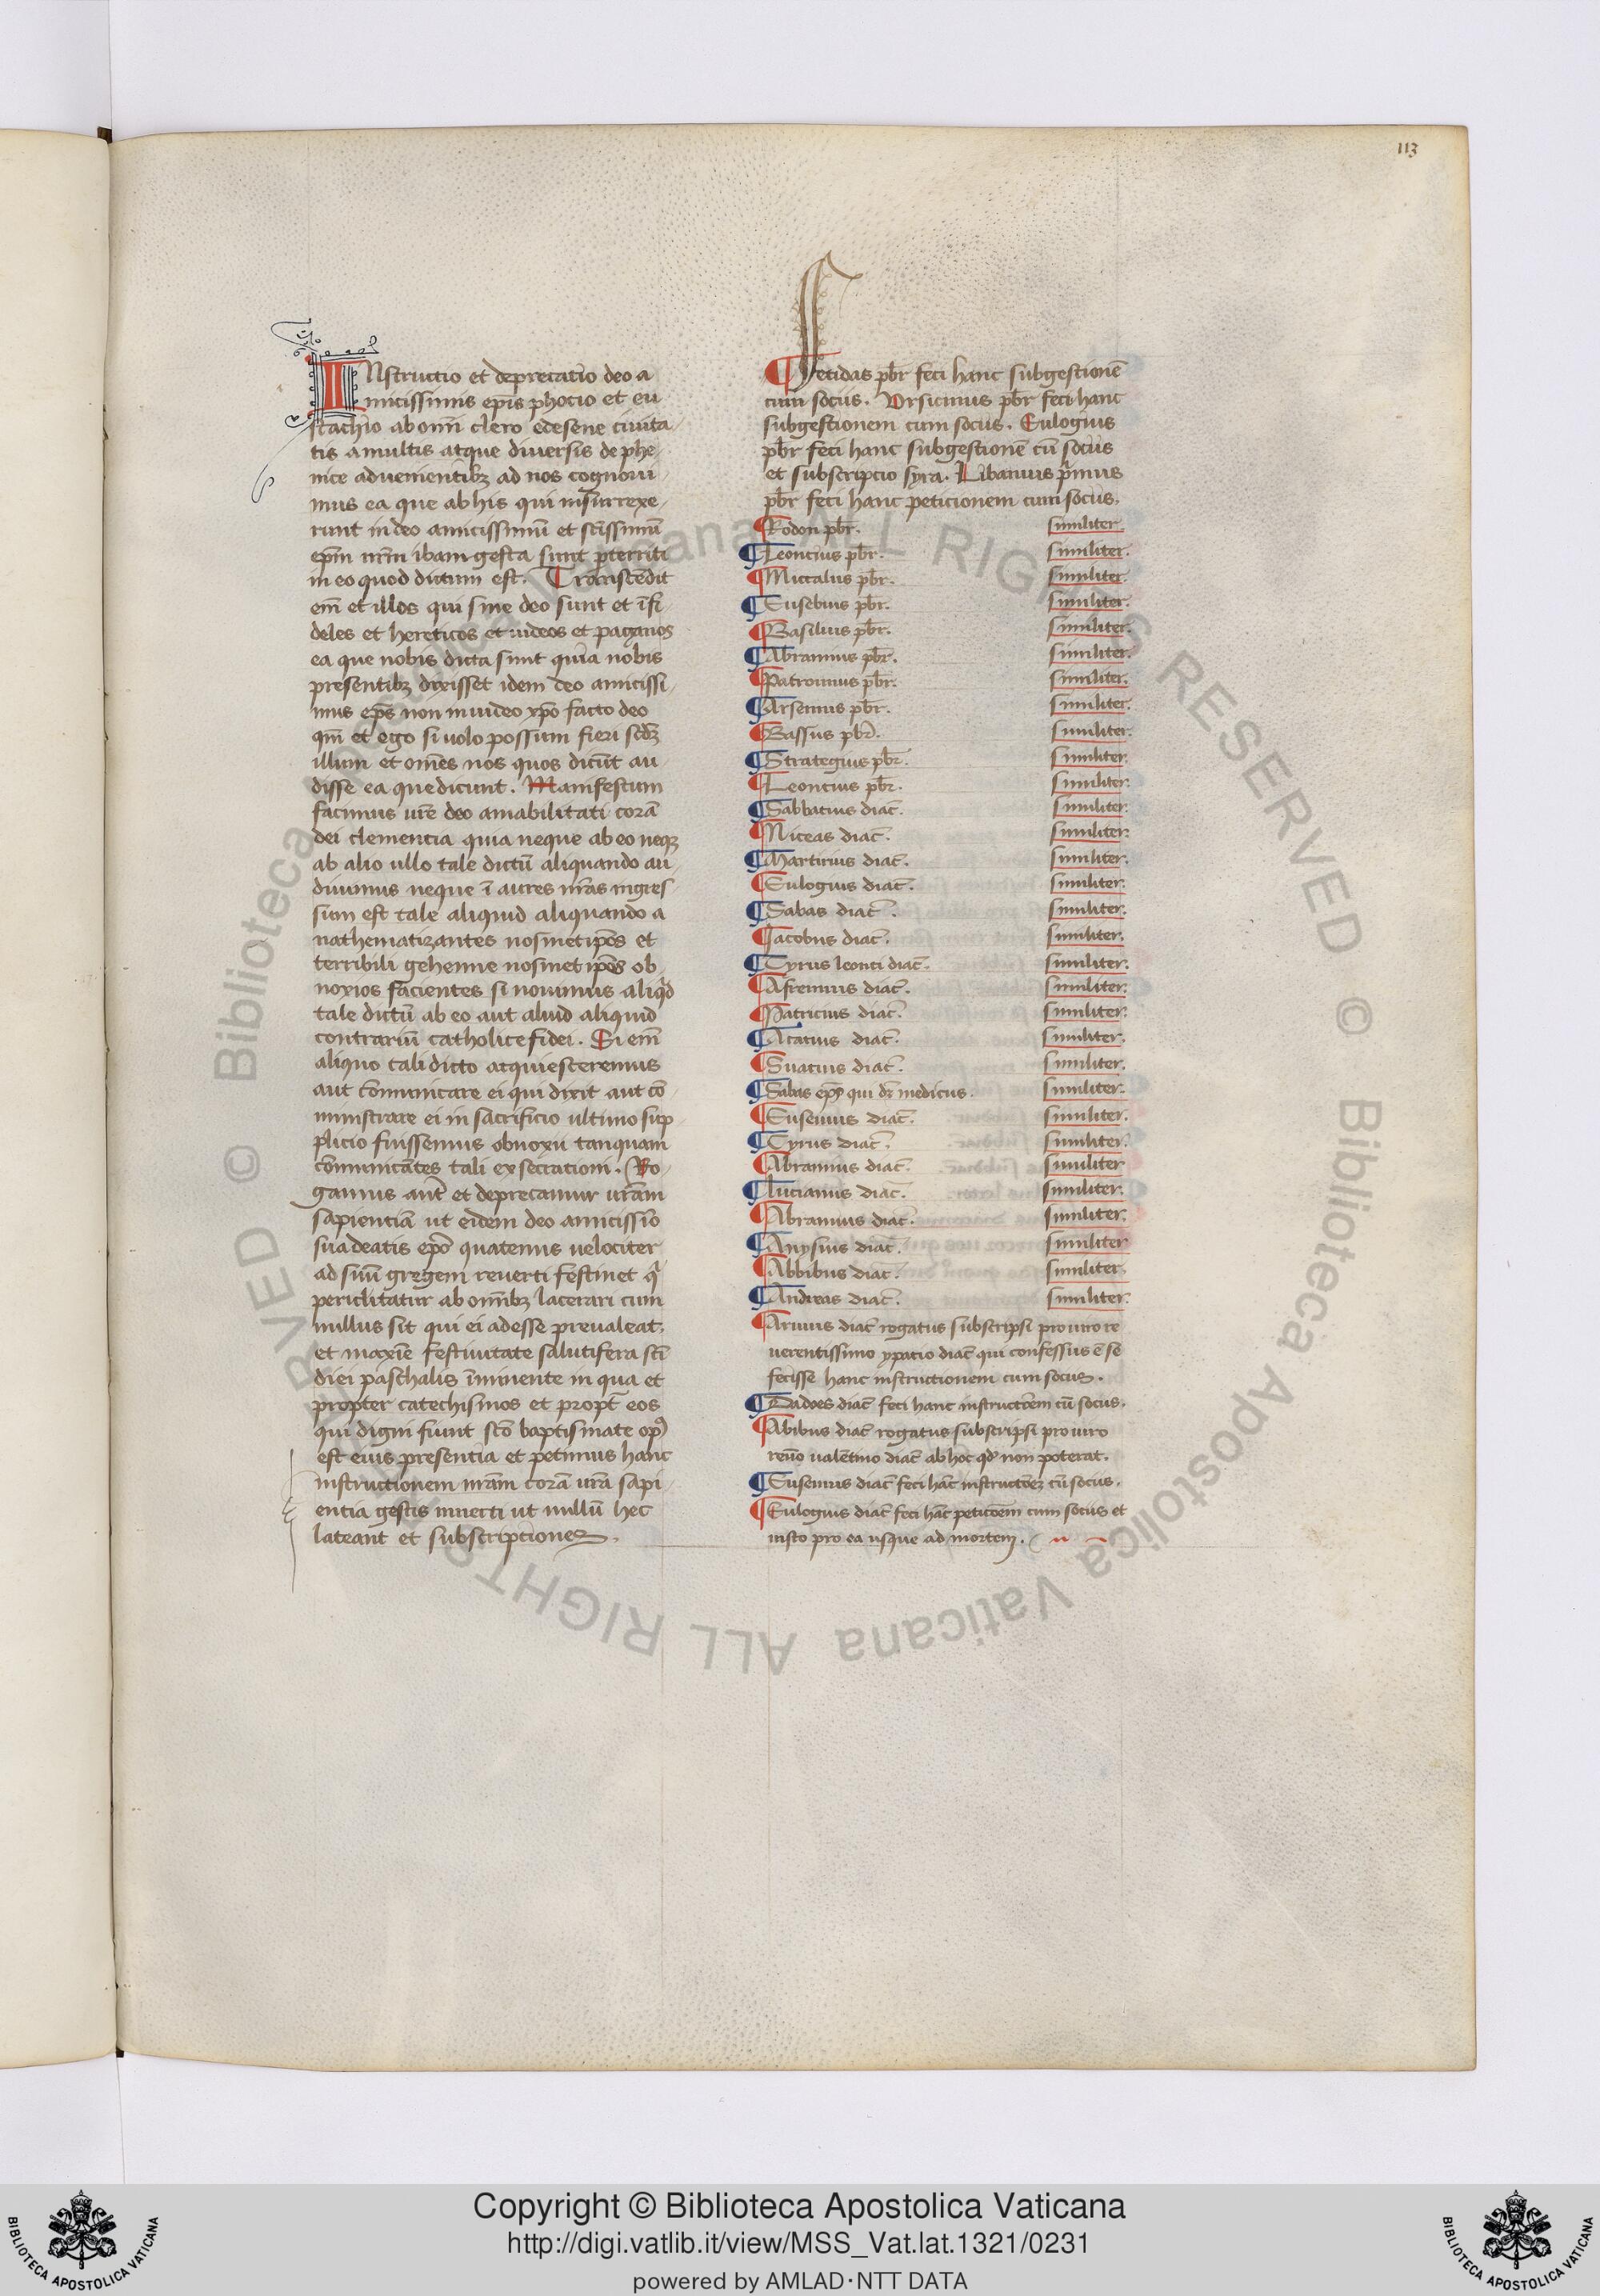 113
INstructio et deprecatio deo a
micissimis ep̄is photio et eu
stachio ab om̄i clero edesene ciuita
tis a multis atque diuersis de phe
nice aduenientibꝫ ad nos cognoui
mus ea que ab his qui insurrexe
runt in deo amicissimū et sc̄issimū
ep̄m nr̄m ibam gesta sunt pterriti
in eo quod dictum est. Trāscēdit
em̄ et illos qui sine deo sunt et īfi
deles et hereticos et iudeos et paganos
ea que nobis dicta sunt quia nobis
presentibꝫ dixisset idem deo amicissi
mus ep̄s non inuideo xp̄o facto deo
qm̄ et ego si uolo possum fieri scdꝫ
illum et om̄es nos quos dicūt au
disse ea que dicunt. Manifestum
facimus ur̄e deo amabilitati corā
dei clemencia quia neque ab eo neqꝫ
ab alio ullo tale dictū aliquando au
diuimus neque ī aures nr̄as ingres
sum est tale aliquid aliquando a
nathematizantes nosmetip̄os et
terribili gehenne nosmet ip̄os ob
noxios facientes si nouimus aliqd
tale dictū ab eo aut aliud aliquid
contrariū catholice fidei. Si em̄
aliquo tali dicto acquiesceremus
aut cōmunicare ei qui dixit aut cō
ministrare ei in sacrificio ultimo sup
plicio fuissemus obnoxii tanquam
cōmunicātes tali exsecrationi. Ro
gamus aut̄ et deprecamur ur̄am
sapientiā ut eidem deo amicissīo
suadeatis ep̄o quatenus uelociter
ad suū gregem reuerti festinet q
periclitatur ab om̄ibꝫ lacerari cum
nullus sit qui ei adesse preualeat
et maxīe festiuitate salutifera sc̄i
diei paschalis īminente in qua et
propter catechismos et propt̄ eos
qui digni fiunt sc̄o baptismate opꝰ
est eius presentia et petimus hanc
instructionem nr̄am corā ur̄a sapi
entia gestis innecti ut nullū hec
lateant et subscriptiones.
Fecidas pb̄r feci hanc subgestionē
cum sociis. Vrsicinus pb̄r feci hanc
subgestionem cum sociis. Eulogius
pb̄r feci hanc subgestionē cū sociis
et subscripcio syra. Libanius p̄mus
pb̄r feci hanc peticionem cum sociis.
¶Rodon pb̄r. similiter.
¶Leoncius pb̄r. similiter.
¶Miccalus pb̄r. similiter.
¶Eusebius pb̄r. similiter.
¶Basilius pb̄r. similiter.
¶Abramius pb̄r. similiter.
¶Patroinus pb̄r. similiter.
¶Arsenius pb̄r. similiter.
¶Bassus pb̄r. similiter.
¶Strategius pb̄r. similiter.
¶Leoncius pb̄r. similiter.
¶Sabbatius diac̄. similiter.
¶Niceas diac̄. similiter.
¶Martirius diac̄. similiter.
¶Eulogius diac̄. similiter.
¶Sabas diac̄. similiter.
¶Iacobus diac̄. similiter.
¶Cyrus leonci diac̄. similiter.
¶Afremius diac̄. similiter.
¶Patricius diac̄. similiter.
¶Acacius diac̄. similiter.
¶Euacius diac̄. similiter.
¶Sabas ep̄s qui dr̄ medicus. similiter.
¶Eusenius diac̄. similiter.
¶Cyrus diac̄. similiter.
¶Abramius diac̄. similiter
¶Lucianus diac̄. similiter.
¶Abramius diac̄. similiter.
¶Anysius diac̄. similiter
¶Abbibus diac̄. similiter.
¶Andreas diac̄. similiter.
¶Aruius diac̄ rogatus subscripsi pro uiro re
uerentissimo ypatio diac̄ qui confessus ē se
fecisse hanc instructionem cum sociis.
¶Dadoes diac̄ feci hanc instructōem cū sociis.
¶Abibus diac̄ rogatus subscripsi pro uiro
reuō ualētino diac̄ ab hoc qd non poterat.
¶Eusenius diac̄ feci hāc instructōeꝫ cū sociis.
¶Eulogius diac̄ feci hāc peticōem cum sociis et
insto pro ea usque ad mortem.
Copyright © Biblioteca Apostolica Vaticana
http://digi.vatlib.it/view/MSS_Vat.lat.1321/0231
powered by AMLAD·NTT DATA
BIBLIOTECA APOSTOLICA VATICANA
BIBLIOTECA APOSTOLICA VATICANA
© Biblioteca Apostolica Vaticana ALL RIGHTS RESERVED © Biblioteca Apostolica Vaticana ALL RIGHTS RESERVED